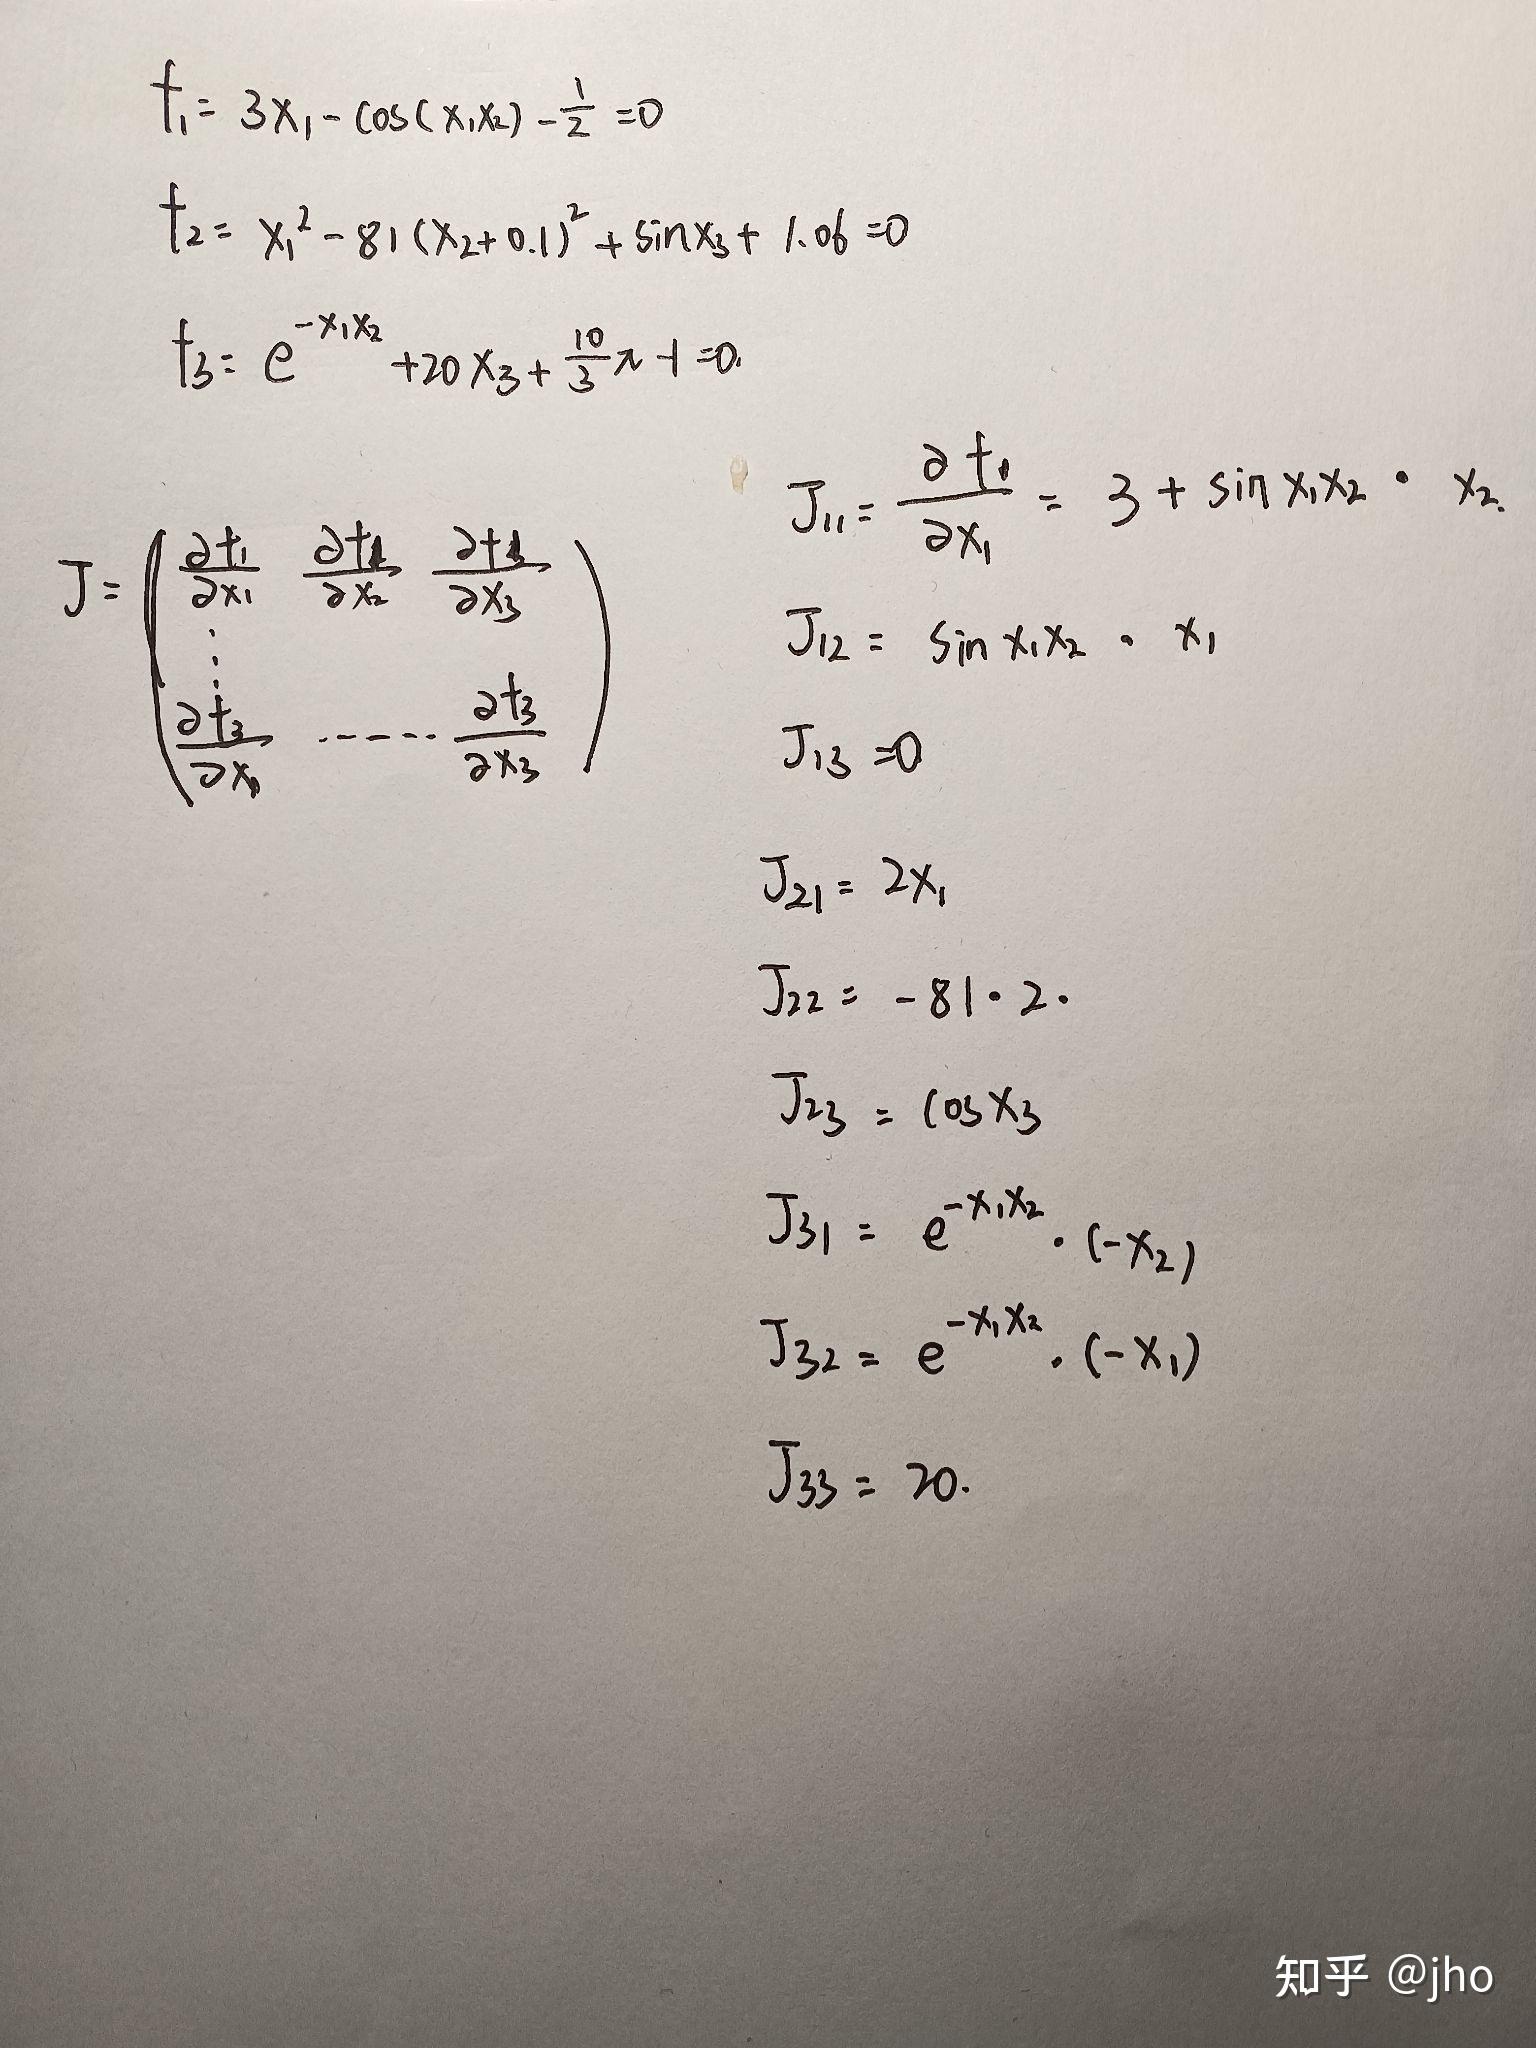 f₁ = 3x₁ - cos(x₁x₂) - 1/2 = 0
f₂ = x₁² - 81(x₂+0.1)² + sinx₃ + 1.06 = 0
f₃ = e^(-x₁x₂) + 20x₃ + 10/3 π - 1 = 0.
J = ( ∂f₁/∂x₁ ∂f₁/∂x₂ ∂f₁/∂x₃
⋮
∂f₃/∂x₁ ------ ∂f₃/∂x₃ )
J₁₁ = ∂f₁/∂x₁ = 3 + sin x₁x₂ · x₂.
J₁₂ = sin x₁x₂ · x₁
J₁₃ = 0
J₂₁ = 2x₁
J₂₂ = -81·2·
J₂₃ = cosx₃
J₃₁ = e^(-x₁x₂) · (-x₂)
J₃₂ = e^(-x₁x₂) · (-x₁)
J₃₃ = 20.
知乎 @jho